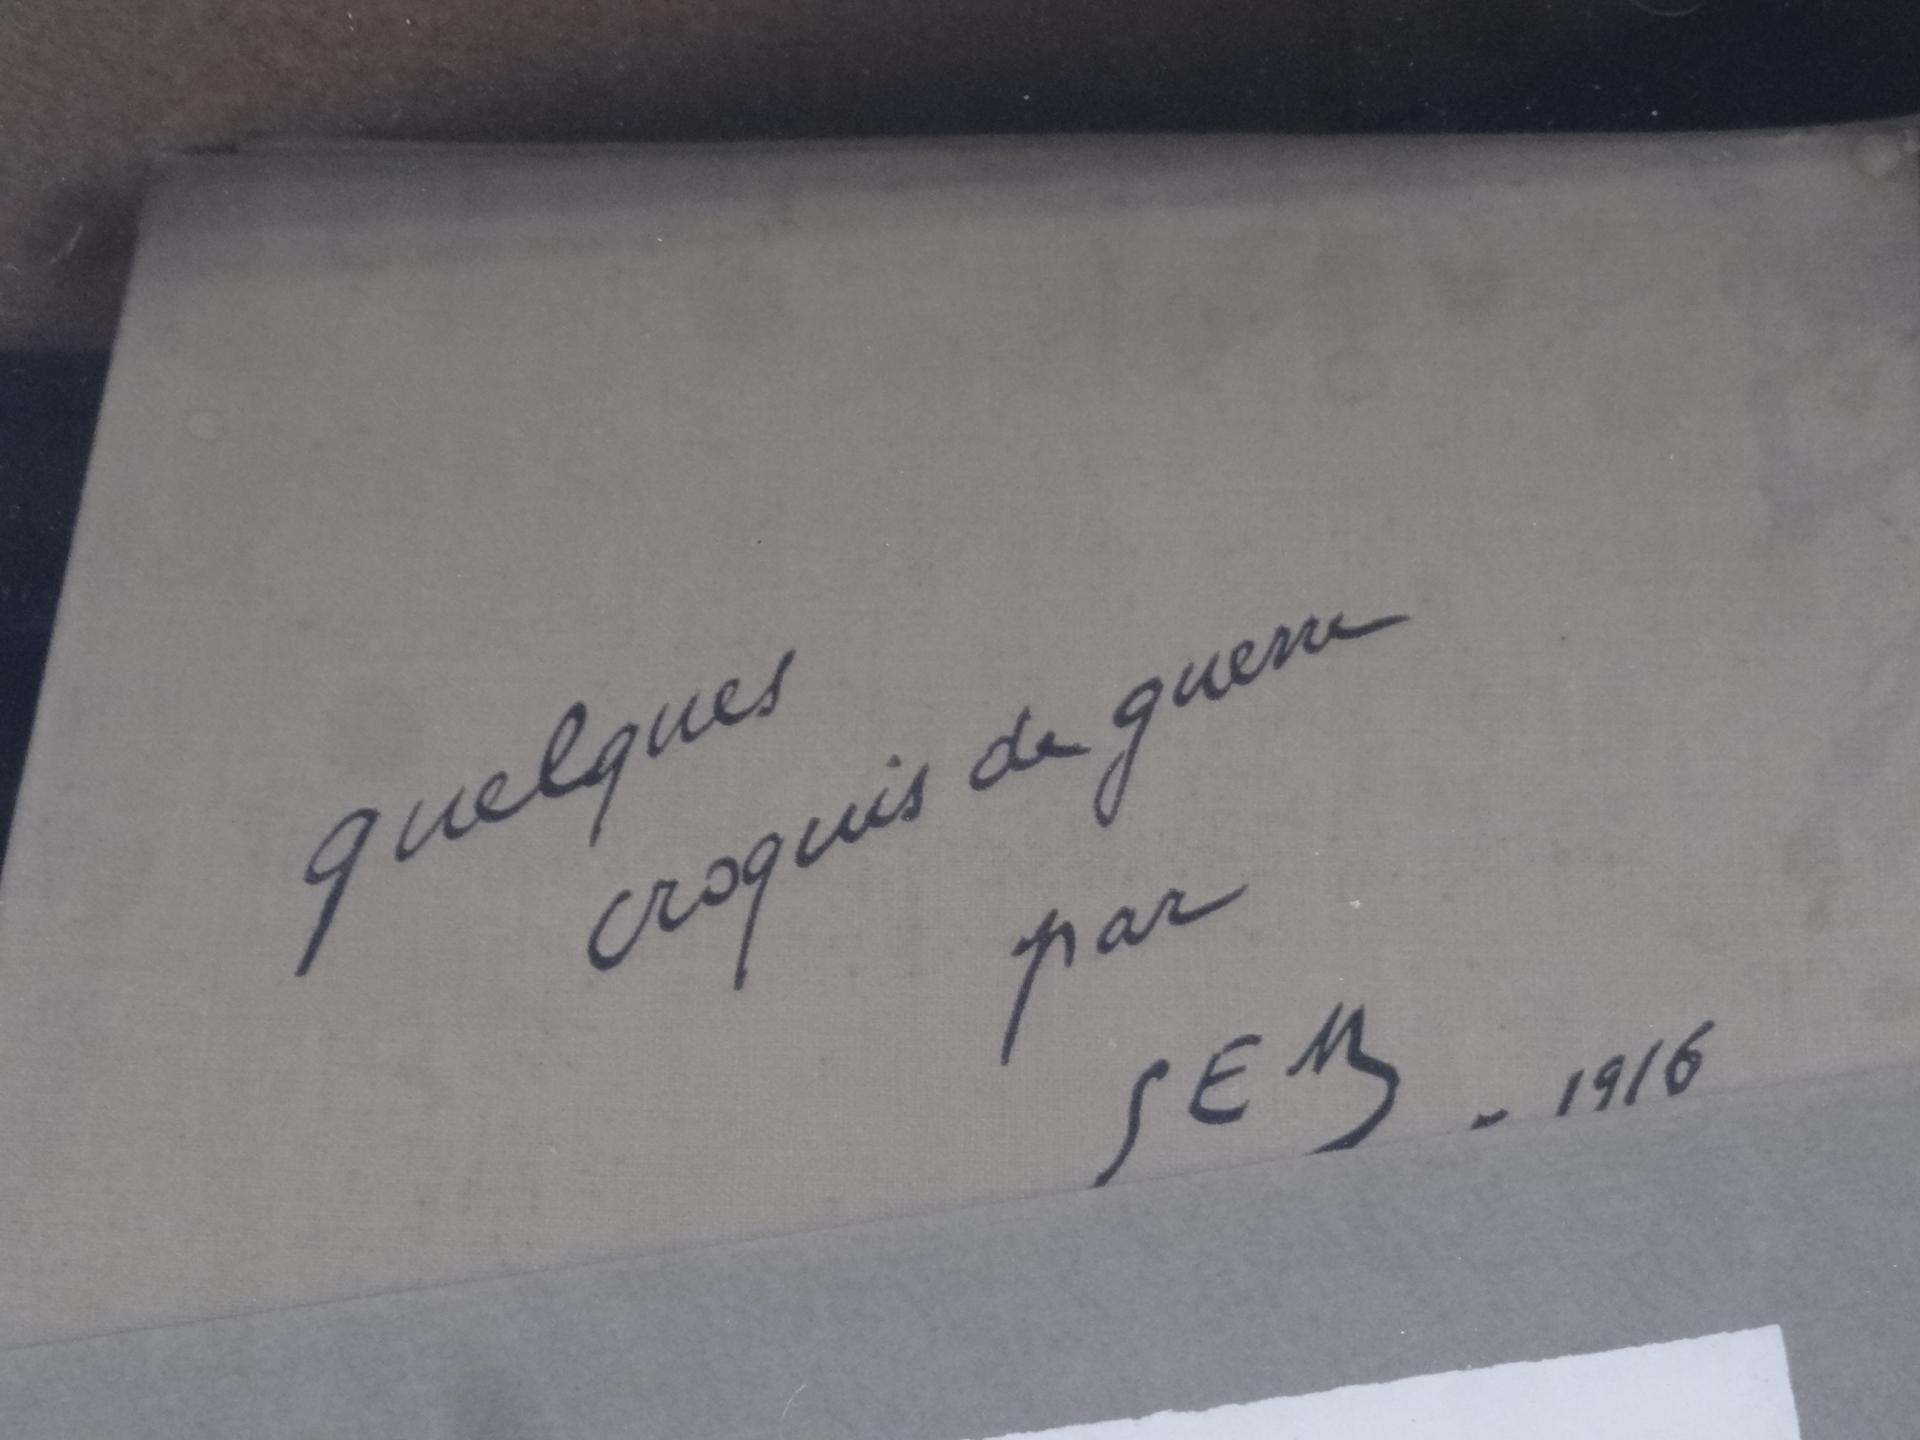 quelques
croquis de guerre
par
SEM - 1916